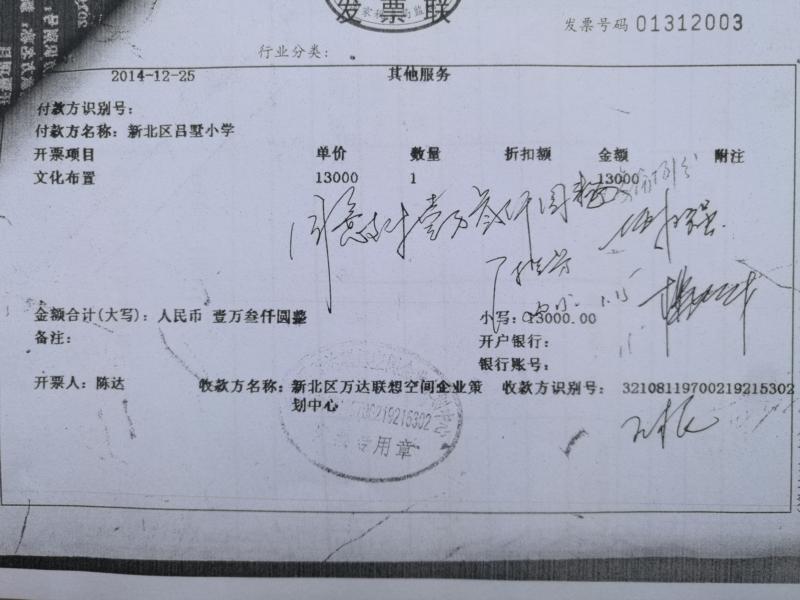 发票联
发票号码 01312003
行业分类：
2014-12-25 其他服务
付款方识别号：
付款方名称：新北区吕墅小学
开票项目 单价 数量 折扣额 金额 附注
文化布置 13000 1 13000
同意支付壹万叁仟圆整
金额合计(大写)：人民币 壹万叁仟圆整 小写：13000.00
备注： 开户银行：
银行账号：
开票人：陈达 收款方名称：新北区万达联想空间企业策 收款方识别号：32108119700219215302
划中心
专用章